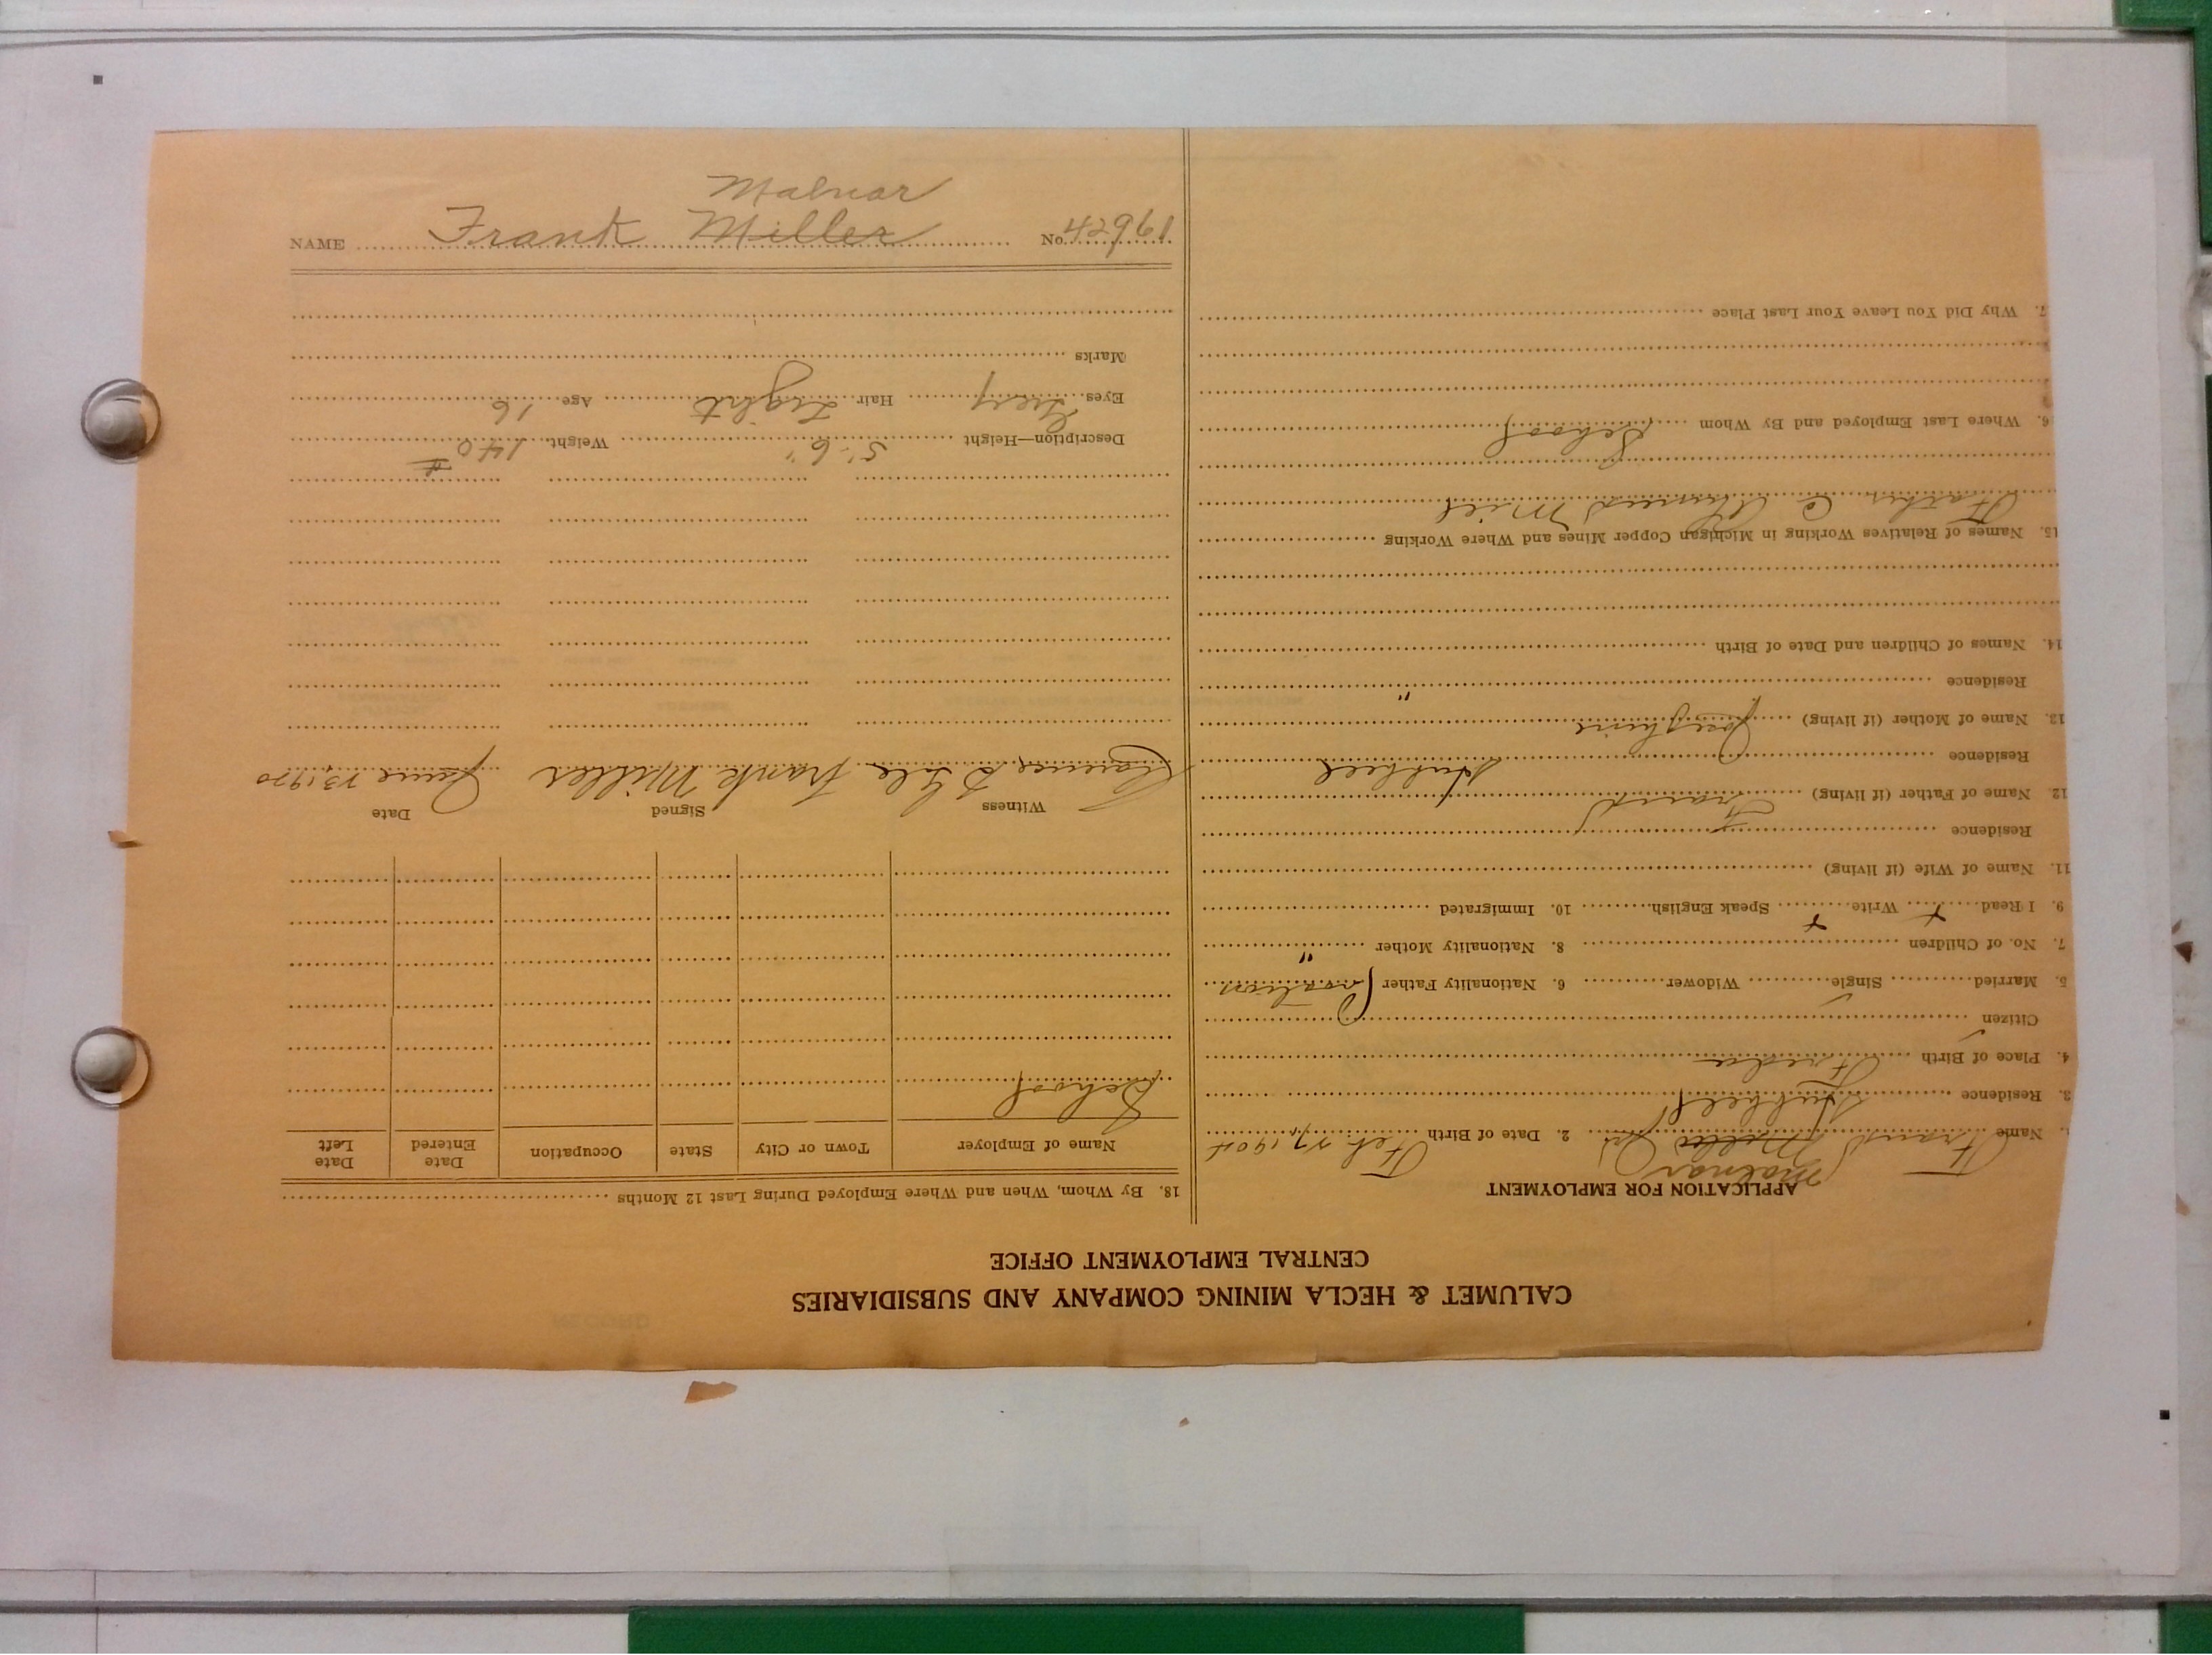 NAME Frank Miller Malnar No. 42961
CALUMET & HECLA MINING COMPANY AND SUBSIDIARIES
CENTRAL EMPLOYMENT OFFICE
APPLICATION FOR EMPLOYMENT
Malnar
Name Frank Miller Jr 2. Date of Birth Feb. 27, 1904
3. Residence Hubbell
4. Place of Birth Freda
Citizen
5. Married Single Widower 6. Nationality Father Croatian
7. No. of Children 8. Nationality Mother "
9. I Read x Write x Speak English 10. Immigrated
11. Name of Wife (if living)
Residence
12. Name of Father (if living) Frank
Residence Hubbell
13. Name of Mother (if living) Josephine
Residence "
14. Names of Children and Date of Birth
15. Names of Relatives Working in Michigan Copper Mines and Where Working
Father @ Ahmeek Mill
6. Where Last Employed and By Whom School
7. Why Did You Leave Your Last Place
18. By Whom, When and Where Employed During Last 12 Months
Name of Employer Town or City State Occupation Date Entered Date Left
School
Witness Signed Date
Clarence Frank Miller June 23, 1920
Description—Height 5' 6" Weight 140 #
Eyes Grey Hair Light Age 16
Marks